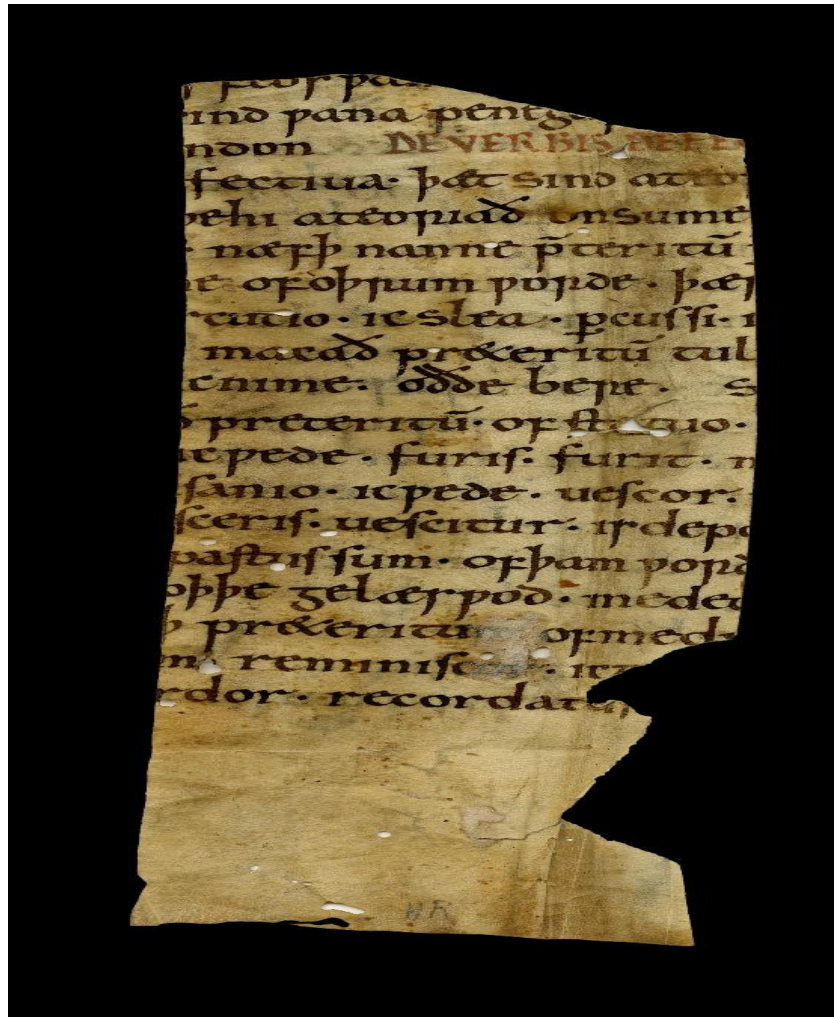 ind ƿana
ndon DE VERBIS DEFE
fectiua· þæt sind ateo
ƿehi ateoriað on sume
· næfþ nanne p̄teritū
ne of oþrum ƿorde· þær
cutio· ic slea· ꝑcussi· i
macað pr&eritū tul
c nime· oððe bere· s
ð preteritū· of statuo·
ic ƿede· furis· furit·
sanio· ic ƿede· uescor·
sceris· uescitur· is depo
pastus sum· of þam ƿord
oþþe gelæsƿod· mede
þ pr&eritum of med
m reminiscor· ic
rdor· recordatus